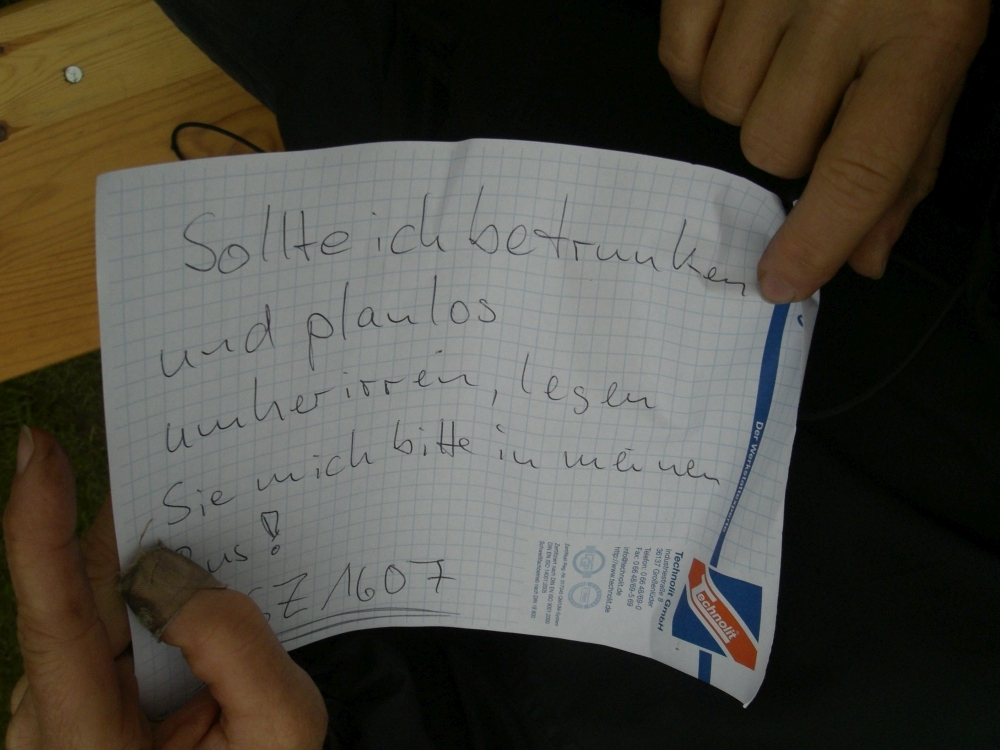 Sollte ich betrunken
und planlos
umherirren, legen
Sie mich bitte in meinen
us!
Z 1607
Technolit GmbH
Industriestraße 8
36137 Großenlüder
Telefon: 0 66 48/69-0
Fax: 0 66 48/69-5 69
info@technolit.de
http://www.technolit.de
technolit